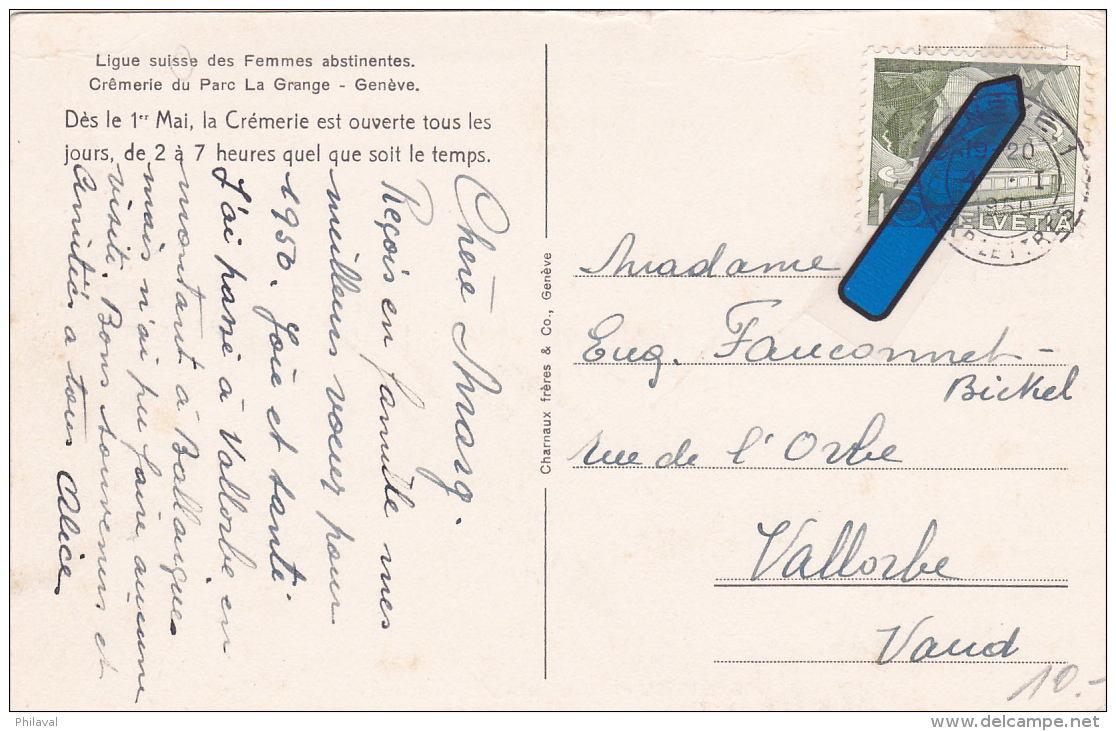 Ligue suisse des Femmes abstinentes.
Crêmerie du Parc La Grange - Genève.
Dès le 1er Mai, la Crémerie est ouverte tous les
jours, de 2 à 7 heures quel que soit le temps.
Chère Marg.
Reçois en famille mes
meilleurs voeux pour
1950. Joie et santé.
J'ai passé à Vallorbe en
montant à Ballaigues
mais n'ai pu faire aucune
visite. Bons souvenirs et
Amitiés à tous Alice
Charnaux frères & Co., Genève
19-20
I
1950
HELVETIA
Madame
Eug. Fauconnet-
Bickel
rue de l'Orbe
Vallorbe
Vaud
10.-
Philaval
www.delcampe.net